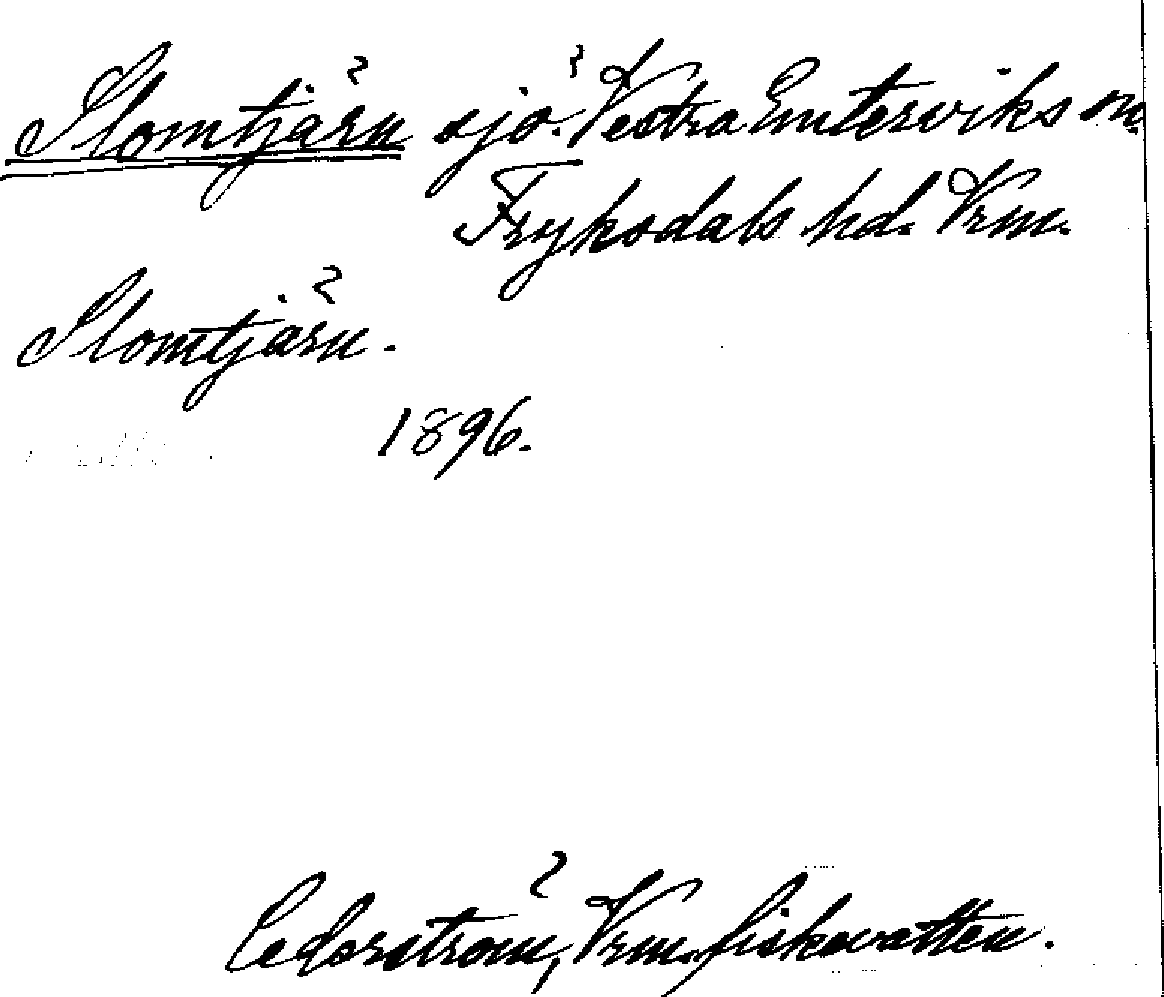 Slomtjärn sjö. Vestra Emterviks sn.
Fryksdals hd. Vrm.
Slomtjärn.
1896.
Cederström, Vrm. fiskevatten.